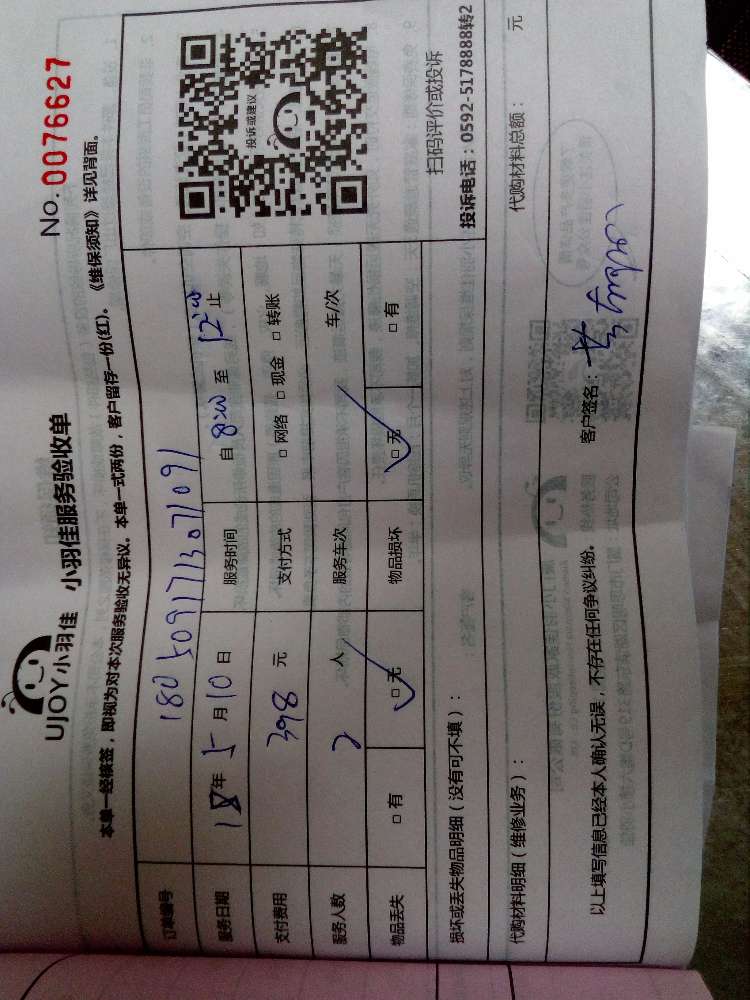 UJOY小羽佳 小羽佳服务验收单
No. 0076627
本单一经核签，即视为对本次服务验收无异议。本单一式两份，客户留存一份(红)。《维保须知》详见背面。
订单编号 1805091713071091
服务日期 18年5月10日 服务时间 自 8:00 至 12:00 止
支付费用 398 元 支付方式 □ 网络 □ 现金 □ 转账
服务人数 2 人 服务车次 车/次
物品丢失 □ 有 □ 无 物品损坏 □ 无 □ 有
投诉或建议
扫码评价或投诉
投诉电话：0592-5178888转2
损坏或丢失物品明细（没有可不填）：
代购材料明细（维修业务）： 代购材料总额： 元
以上填写信息已经本人确认无误，不存在任何争议纠纷。 客户签名：